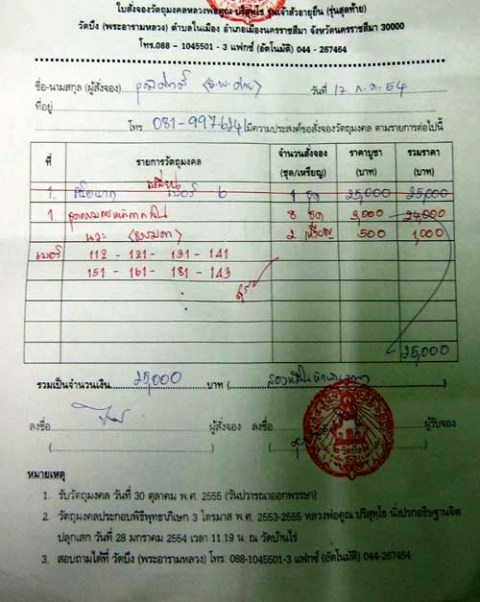 ใบสั่งจองวัตถุมงคลหลวงพ่อคูณ ปริสุทฺโธ รุ่นเจ้าสัวอายุยืน (รุ่นสุดท้าย)
วัดบึง (พระอารามหลวง) ตำบลในเมือง อำเภอเมืองนครราชสีมา จังหวัดนครราชสีมา 30000
โทร.088 - 1045501 - 3 แฟกซ์ (อัตโนมัติ) 044 - 267464
ชื่อ-นามสกุล (ผู้สั่งจอง) วันที่ 17 ก.ค. 54
ที่อยู่
โทร 081-997624 มีความประสงค์ขอสั่งจองวัตถุมงคล ตามรายการต่อไปนี้
ที่ รายการวัตถุมงคล จำนวนสั่งจอง (ชุด/เหรียญ) ราคาบูชา (บาท) รวมราคา (บาท)
1. เบอร์ 6 1 ชุด 25,000 25,000
1. ชุดกรรมการ 8 ชุด 3,000 24,000
นวะ 2 เหรียญ 500 1,000
เบอร์ 112 - 121 - 131 - 141
151 - 161 - 181 - 143
25,000
รวมเป็นจำนวนเงิน 25,000 บาท ( สองหมื่นห้าพัน
ลงชื่อ ผู้สั่งจอง ลงชื่อ ผู้รับจอง
( ) ( )
หมายเหตุ
1. รับวัตถุมงคล วันที่ 30 ตุลาคม พ.ศ. 2555 (วันปวารณาออกพรรษา)
2. วัตถุมงคลประกอบพิธีพุทธาภิเษก 3 ไตรมาส พ.ศ. 2553-2555 หลวงพ่อคูณ ปริสุทฺโธ นั่งปรกอธิษฐานจิต
ปลุกเสก วันที่ 28 มกราคม 2554 เวลา 11.19 น. ณ วัดบ้านไร่
3. สอบถามได้ที่ วัดบึง (พระอารามหลวง) โทร. 088-1045501-3 แฟกซ์ (อัตโนมัติ) 044-267464